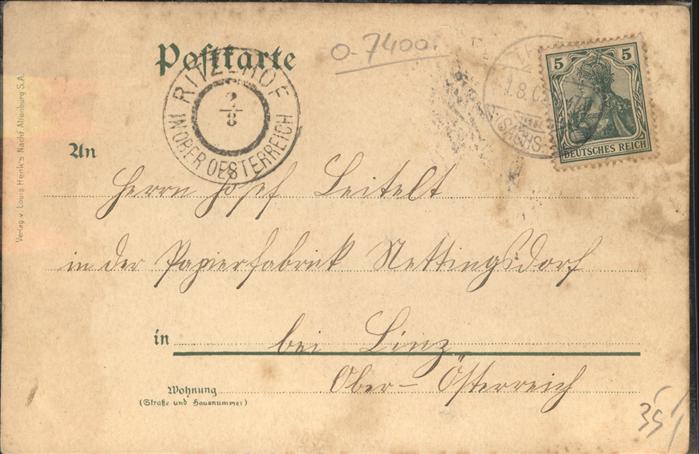 Postkarte
0-7400.
RITZLHOF
2/8
IN OBER OESTERREICH
1.8.0
(SACHS.
5 5
DEUTSCHES REICH
Verlag v. Louis Henk's Nachf. Altenburg S.A.
An
Herrn Josef Leitelt
in der Papierfabrik Nettingsdorf
in bei Linz
Wohnung Ober-Österreich
(Straße und Hausnummer)
35